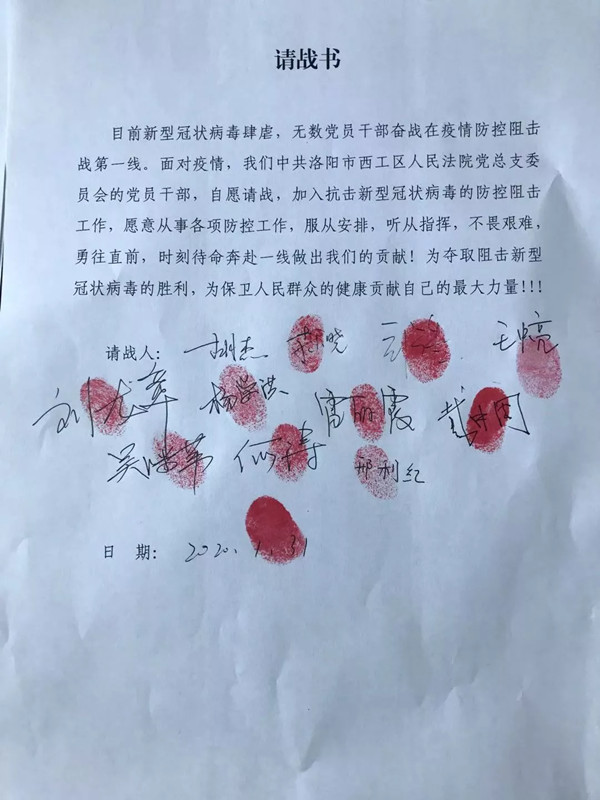 请战书
目前新型冠状病毒肆虐，无数党员干部奋战在疫情防控阻击
战第一线。面对疫情，我们中共洛阳市西工区人民法院党总支委
员会的党员干部，自愿请战，加入抗击新型冠状病毒的防控阻击
工作，愿意从事各项防控工作，服从安排，听从指挥，不畏艰难，
勇往直前，时刻待命奔赴一线做出我们的贡献！为夺取阻击新型
冠状病毒的胜利，为保卫人民群众的健康贡献自己的最大力量!!!
请战人： 胡杰 王亮
何涛 邢利红
日 期： 2020.1.31